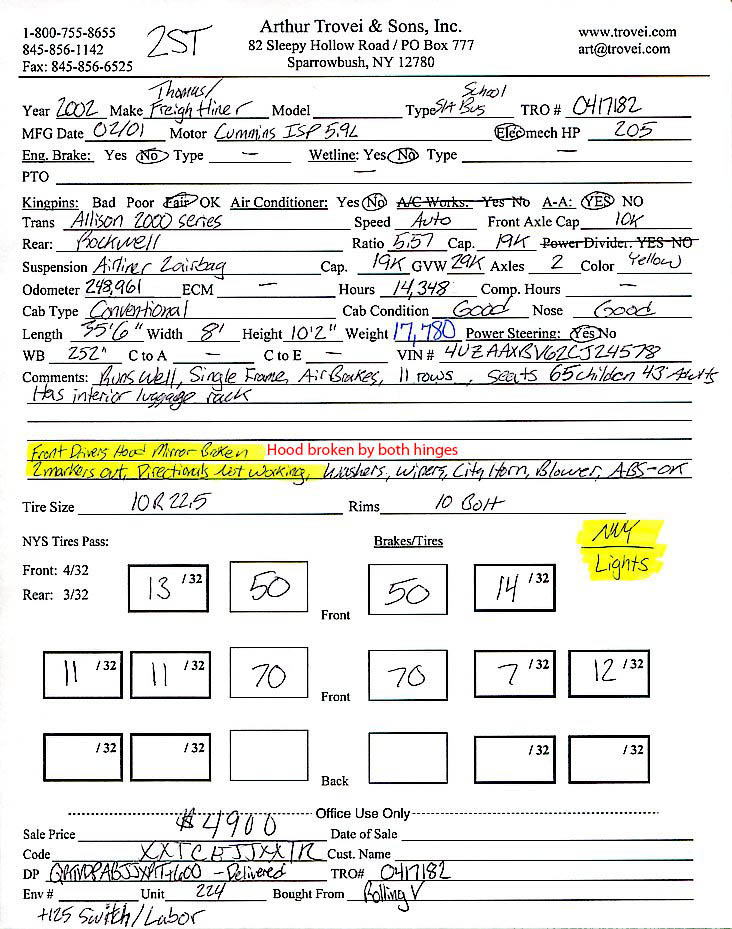 1-800-755-8655
845-856-1142
Fax: 845-856-6525
2ST
Arthur Trovei & Sons, Inc.
82 Sleepy Hollow Road / PO Box 777
Sparrowbush, NY 12780
www.trovei.com
art@trovei.com
Year 2002 Make Thomas/ Freightliner Model Type S/A School Bus TRO # 0417182
MFG Date 02/01 Motor Cummins ISP 5.9L Elec mech HP 205
Eng. Brake: Yes No Type — Wetline: Yes No Type —
PTO —
Kingpins: Bad Poor Fair OK Air Conditioner: Yes No A/C Works: Yes No A-A: YES NO
Trans Allison 2000 series Speed Auto Front Axle Cap 10K
Rear: Rockwell Ratio 5.57 Cap. 19K Power Divider: YES NO
Suspension Airliner 2airbag Cap. 19K GVW 29K Axles 2 Color Yellow
Odometer 248,961 ECM — Hours 14,348 Comp. Hours —
Cab Type Conventional Cab Condition Good Nose Good
Length 35'6" Width 8' Height 10'2" Weight 17,780 Power Steering: Yes No
WB 252" C to A — C to E — VIN # 4UZAAXBV62CJ24578
Comments: Runs Well, Single Frame, Air Brakes, 11 rows, seats 65 childen 43 Adults
Has interior luggage rack
Front Drivers Hood Mirror Broken Hood broken by both hinges
2 markers out, Directionals not working, Washers, Wipers, City Horn, Blower, ABS-OK
Tire Size 10R22.5 Rims 10 Bolt
NYS Tires Pass: Brakes/Tires
Lights
Front: 4/32
Rear: 3/32
13 /32 50 50 14 /32
Front
11 /32 11 /32 70 70 7 /32 12 /32
Front
/32 /32 /32 /32
Back
Office Use Only
Sale Price $4900 Date of Sale
Code XXTCEJJXXIR Cust. Name
DP +600 - Delivered TRO# 0417182
Env # Unit 224 Bought From Rolling V
+125 Switch/Labor